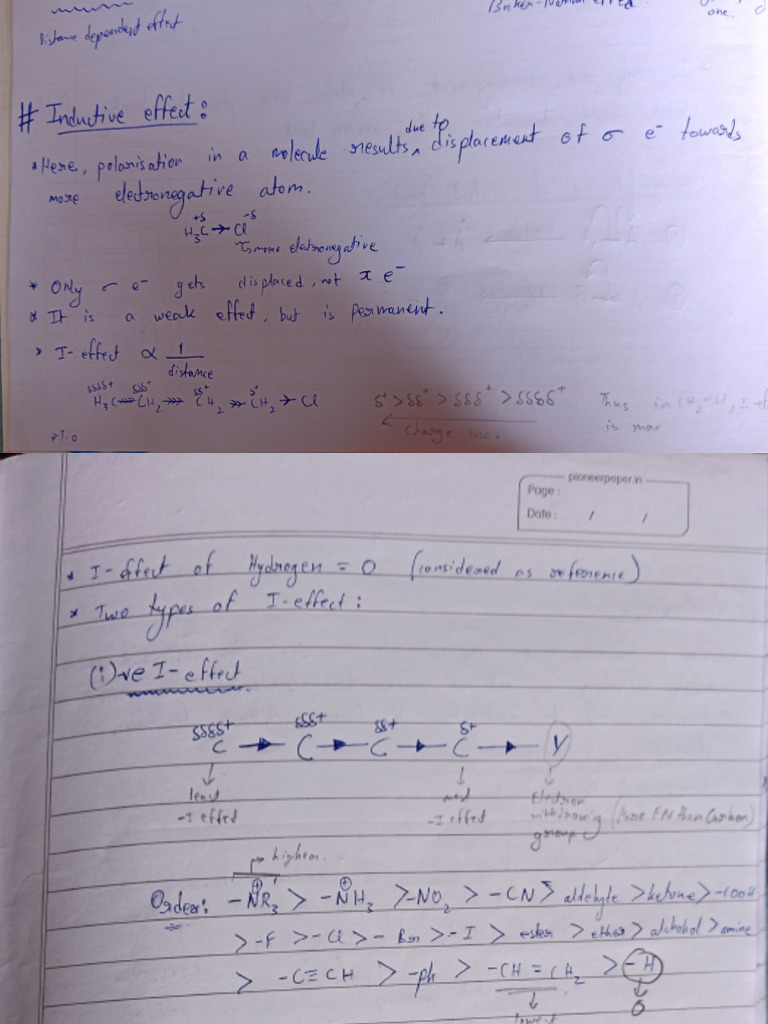 Distance dependent effect
one.
# Inductive effect:
* Here, polarisation in a molecule results due to displacement of σ e⁻ towards
more electronegative atom.
+δ -δ
H₃C→Cl
↳more electronegative
* Only σ e⁻ gets displaced, not π e⁻
* It is a weak effect, but is permanent.
* I-effect ∝ 1/distance
δδδδ+ δδδ+ δδ+ δ+
H₃C⋙CH₂⋙CH₂⋙CH₂→Cl
δ⁺ > δδ⁺ > δδδ⁺ > δδδδ⁺
charge inc.
Thus in CH₂-Cl, I-ef
is max
P.T.O
pioneerpaper.in
Page :
Date : / /
* I-effect of Hydrogen = 0 (considered as reference)
* Two types of I-effect:
(i) -ve I-effect
δδδδ+ δδδ+ δδ+ δ+
C → C → C → C → Y
least
-I effect
most
-I effect
Electron
withdrawing
group
(More EN than Carbon)
highest
Order: -N⊕R₃ > -N⊕H₃ > -NO₂ > -CN > aldehyde > ketone > -COOH
> -F > -Cl > - Br > -I > ester > ether > alchohol > amine
> -C≡CH > -ph > -CH=CH₂ > -H
lowest
0